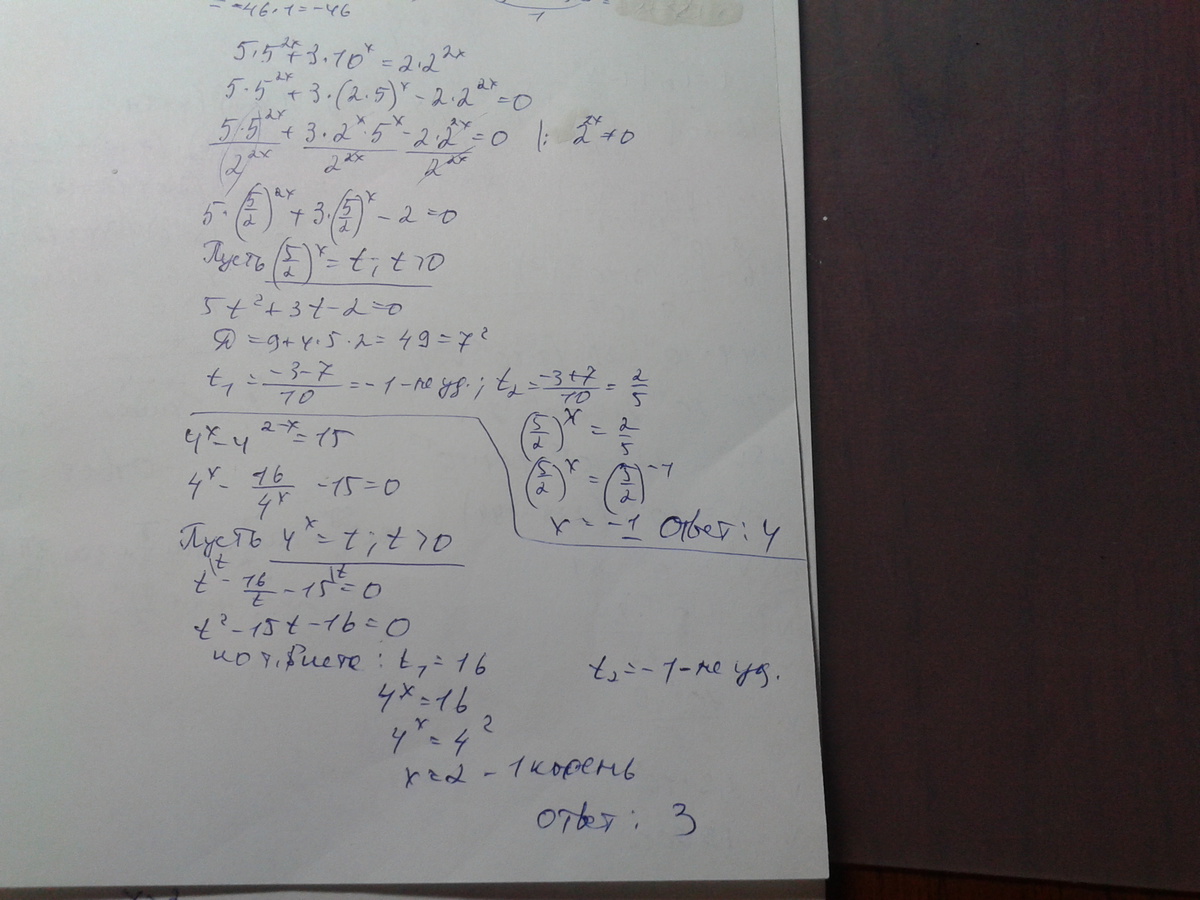 = -46·1=-46
1
5·5^2x+3·10^x=2·2^2x
5·5^2x+3·(2·5)^x-2·2^2x=0
5·5^2x/2^2x+3·2^x·5^x/2^2x-2·2^2x/2^2x=0 |: 2^2x≠0
5·(5/2)^2x+3·(5/2)^x-2=0
Пусть (5/2)^x=t; t>0
5t²+3t-2=0
D=9+4·5·2=49=7²
t₁=-3-7/10=-1-не уд.; t₂=-3+7/10=2/5
(5/2)^x=2/5
(5/2)^x=(5/2)^-1
x=-1 Ответ: 4
4^x-4^2-x=15
4^x-16/4^x-15=0
Пусть 4^x=t; t>0
t\t-16/t-15\t=0
t²-15t-16=0
по т. Виета: t₁=16 t₂=-1-не уд.
4^x=16
4^x=4²
x=2-1 корень
ответ: 3